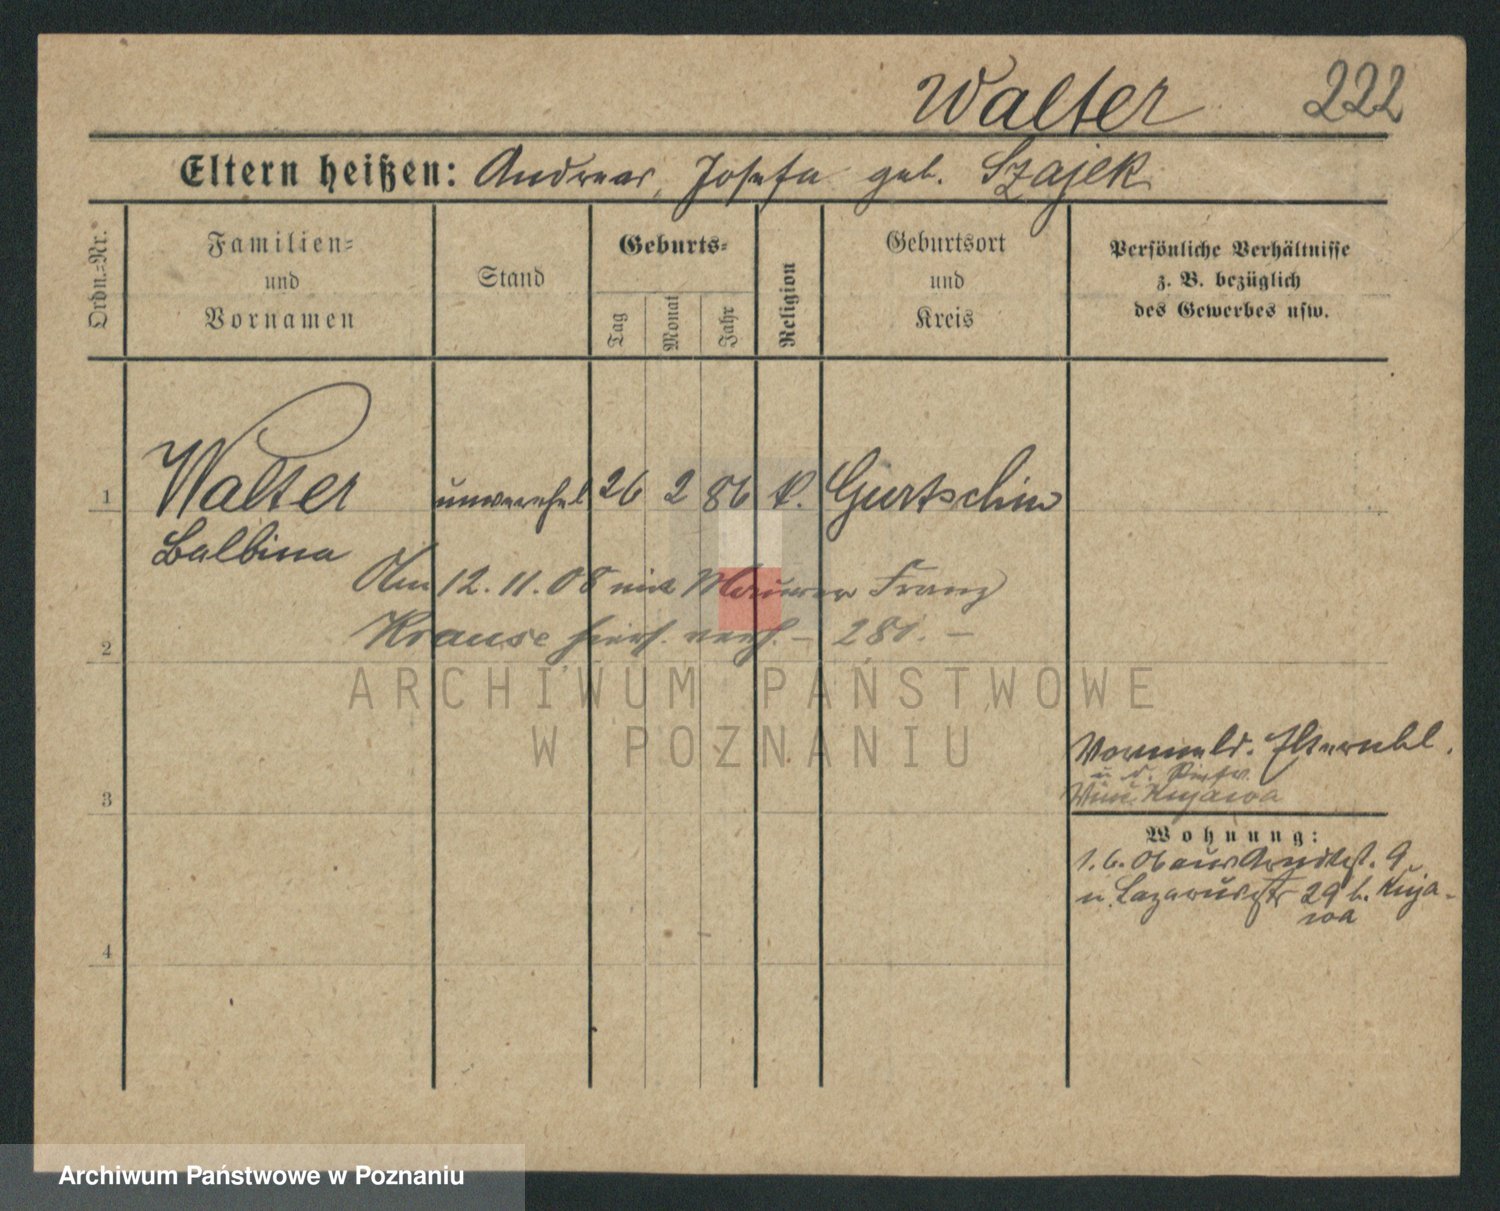 Walter 222
Eltern heißen: Andreas, Josefa geb. Szajek
Ordn.=Nr.
Familien=
und
Vornamen
Stand
Geburts=
Tag
Monat
Jahr
Religion
Geburtsort
und
Kreis
Persönliche Verhältnisse
z. B. bezüglich
des Gewerbes usw.
1 Walter unverehel 26 2 86 k. Gurtschin
Balbina
Am 12.11.08 mit Maurer Franz
2 Krause hier verh. – 281. –
ARCHIWUM PAŃSTWOWE
W POZNANIU
Vormeld.
u d.
3 Kujawa
Wohnung:
1.6.06 aus 9
u. Lazarusstr 29 b. Kuja-
wa
4
Archiwum Państwowe w Poznaniu